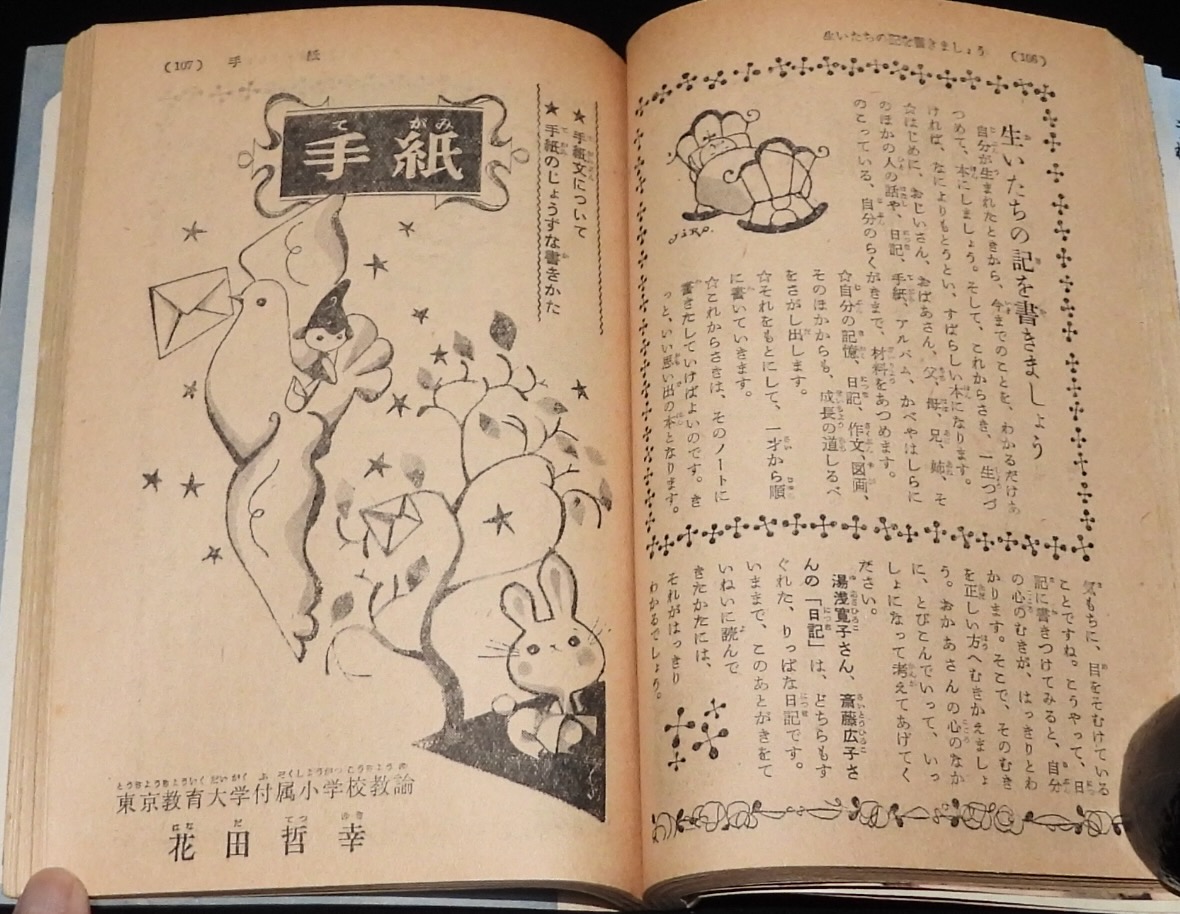 生いたちの記を書きましょう (106)
生いたちの記を書きましょう
自分が生まれたときから、今までのことを、わかるだけあ
つめて、本にしましょう。そして、これからさき、一生つづ
ければ、なによりもとうとい、すばらしい本になります。
☆はじめに、おじいさん、おばあさん、父、母、兄、姉、そ
のほかの人の話や、日記、手紙、アルバム、かべやはしらに
のこっている、自分のらくがきまで、材料をあつめます。
☆自分の記憶、日記、作文、図画、
そのほかからも、成長の道しるべ
をさがし出します。
☆それをもとにして、一才から順
に書いていきます。
☆これからさきは、そのノートに
書きたしていけばよいのです。き
っと、いい思い出の本となります。
JiRO.
気もちに、目をそむけている
ことですね。こうやって、日
記に書きつけてみると、自分
の心のむきが、はっきりとわ
かります。そこで、そのむき
を正しい方へむきかえましょ
う。おかあさんの心のなか
に、とびこんでいって、いっ
しょになって考えてあげてく
ださい。
湯浅寛子さん、斎藤広子さ
んの「日記」は、どちらもす
ぐれた、りっぱな日記です。
いままで、このあとがきをて
いねいに読んで
きたかたには、
それがはっきり
わかるでしょう。
(107) 手 紙
★ 手紙文について
★ 手紙のじょうずな書きかた
手紙
東京教育大学付属小学校教諭
花田哲幸